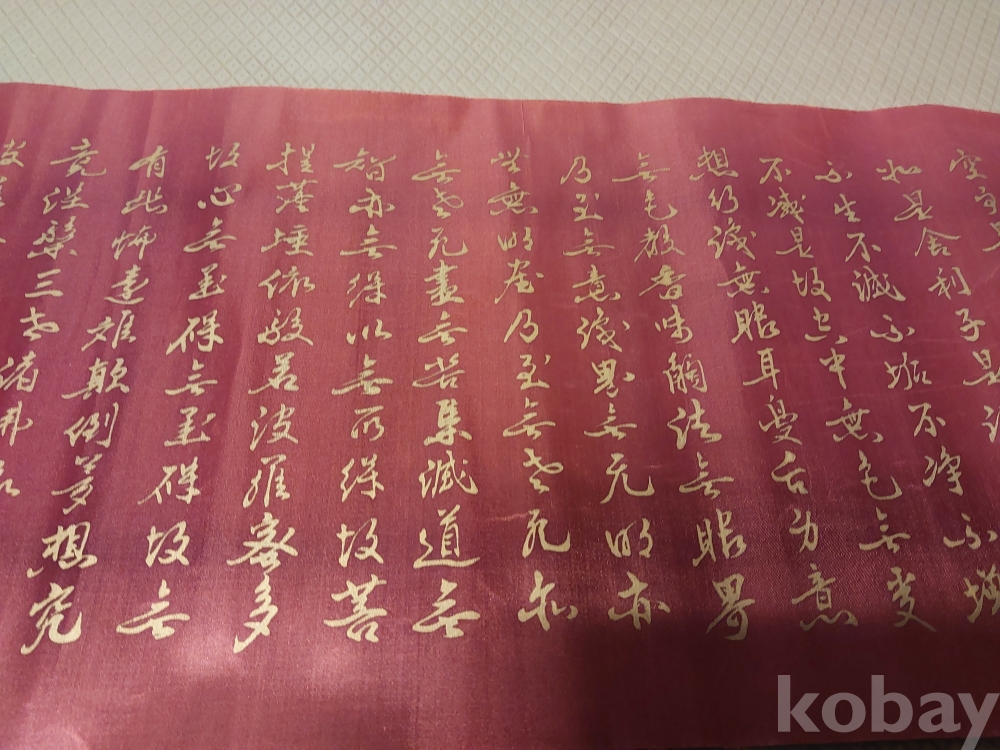 空即是
如是舍利子是諸
不生不滅不垢不淨不增
不減是故空中無色無受
想行識無眼耳鼻舌身意
無色聲香味觸法無眼界
乃至無意識界無无明亦
無無明盡乃至無老死亦
無老死盡無苦集滅道無
智亦無得以無所得故菩
提薩埵依般若波羅蜜多
故心無罣礙無罣礙故無
有恐怖遠離顛倒夢想究
竟涅槃三世諸佛依
kobay